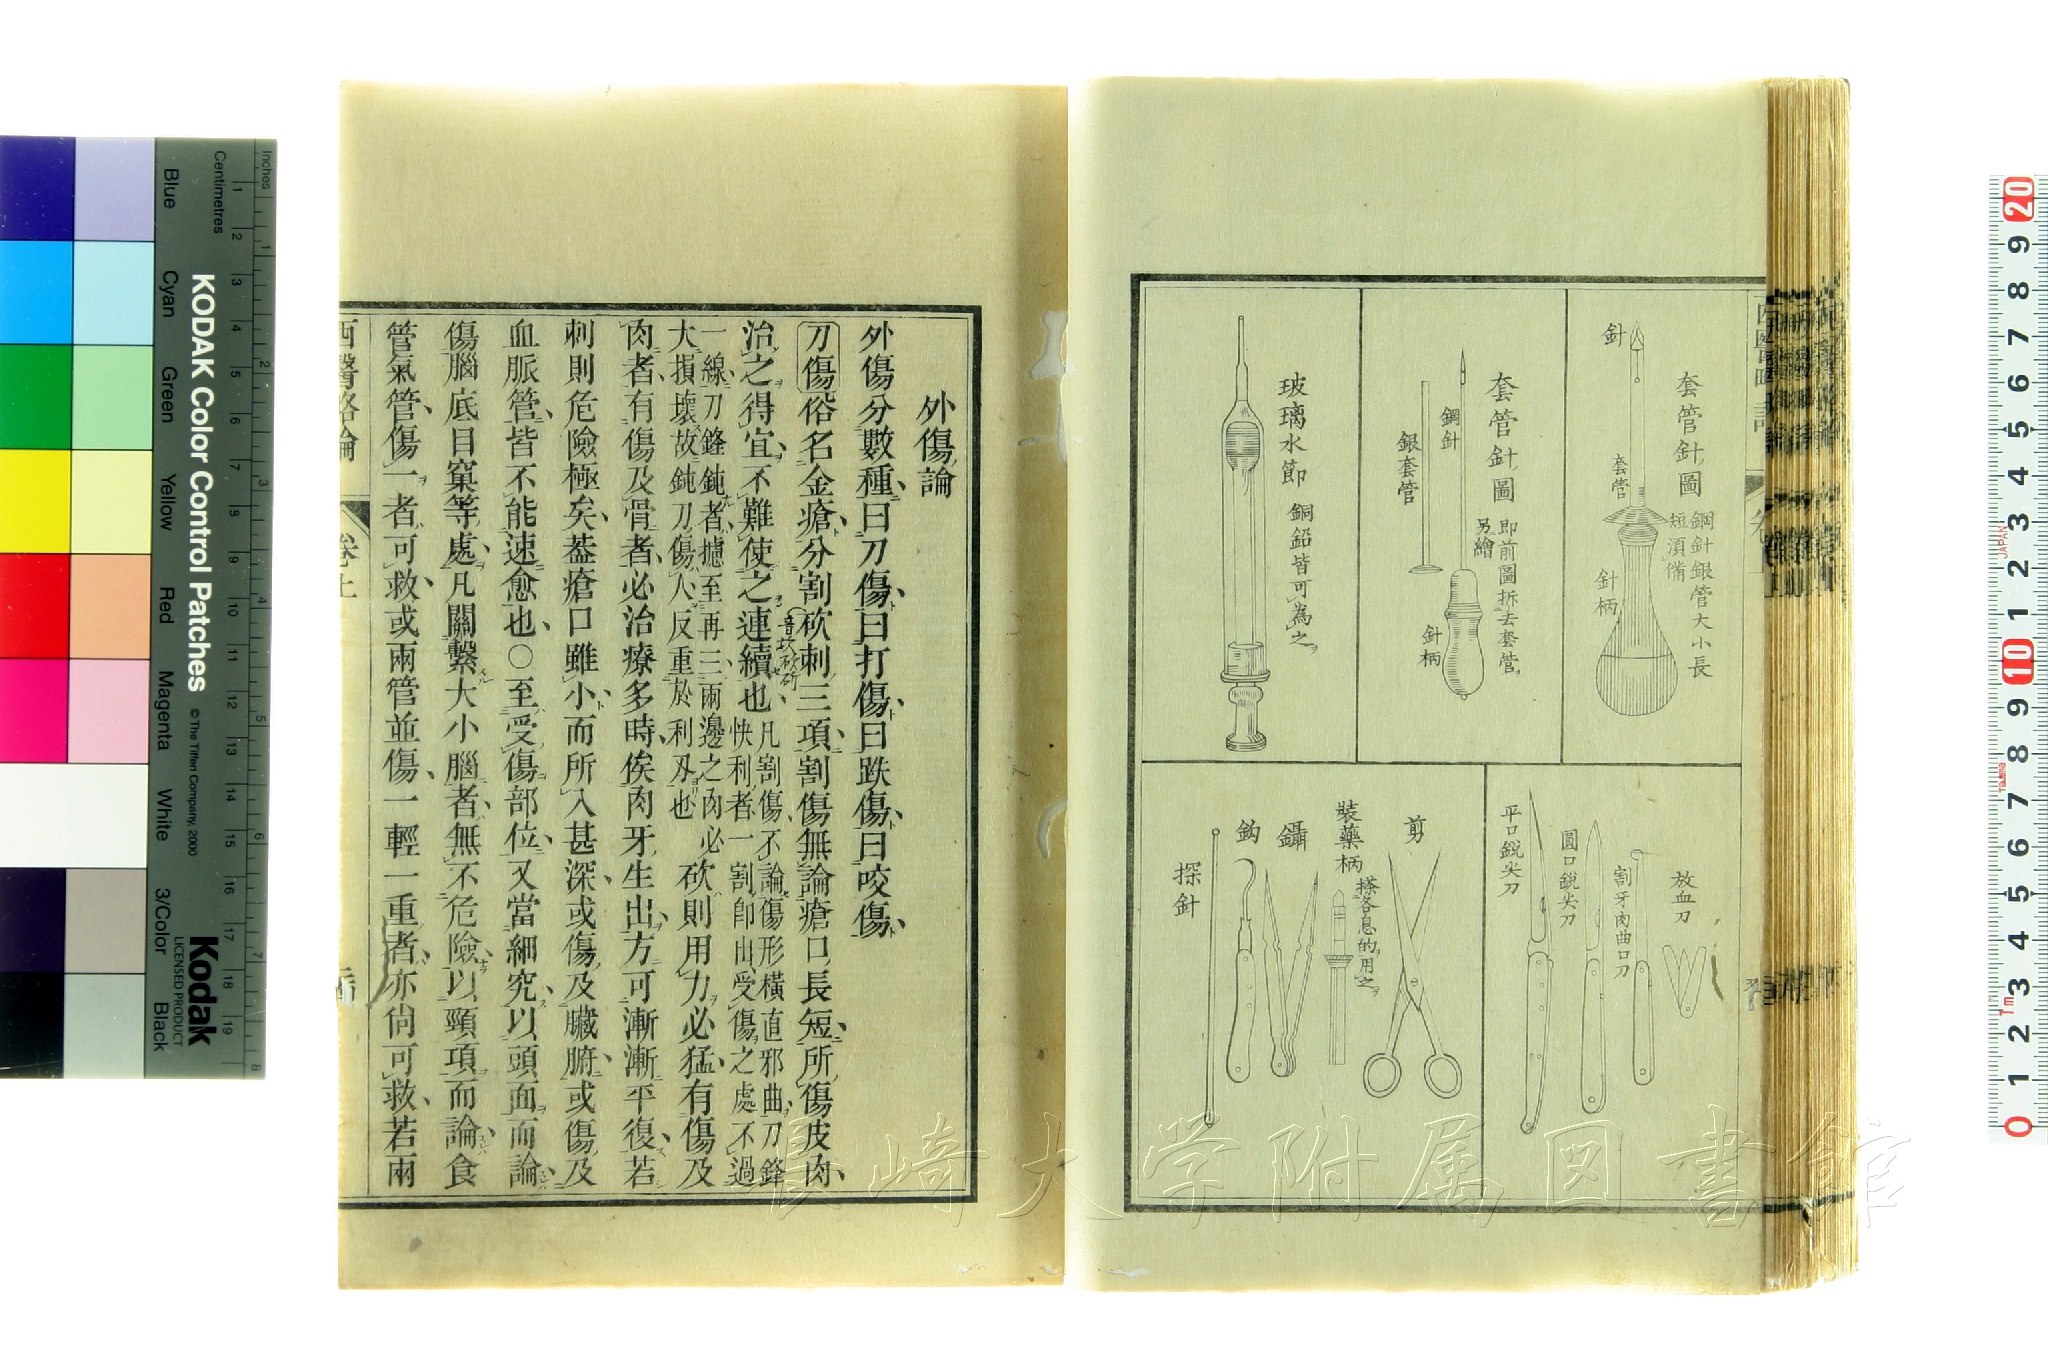 套管針圖
鋼針銀管大小長
短須備
針
套管
針柄
套管針圖
即前圖拆去套管
另繪
鋼針
銀套管
針柄
玻璃水節
銅鉛皆可為之
放血刀
割牙肉曲口刀
圓口銳尖刀
平口銳尖刀
剪
裝藥柄
搽各息的用之
鑷
鈎
探針
外傷論
外傷分數種曰刀傷曰打傷曰跌傷曰咬傷
刀傷俗名金瘡分割砍刺三項割傷無論瘡口長短所傷皮肉
治之得宜不難使之連續也凡割傷不論傷形橫直邪曲刀鋒
快利者一割卽出受傷之處不過
一線刀鋒鈍者摅至再三兩邊之肉必
大損壞故鈍刀傷人反重於利刄也
砍則用力必猛有傷及
肉者有傷及骨者必治療多時俟肉牙生出方可漸漸平復若
刺則危險極矣葢瘡口雖小而所入甚深或傷及臟腑或傷及
血脈管皆不能速愈也○至受傷部位又當細究以頭面而論
傷腦底目窠等處凡關繫大小腦者無不危險以頸項而論食
管氣管傷一者可救或兩管並傷一輕一重者亦尙可救若兩
西醫略論
卷上
KODAK Color Control Patches
© The Tiffen Company, 2000
Kodak
LICENSED PRODUCT
Inches
Centimetres
Blue
Cyan
Green
Yellow
Red
Magenta
White
3/Color
Black
1 2 3 4 5 6 7 8 9 10 11 12 13 14 15 16 17 18 19
1 2 3 4 5 6 7 8
20 9 8 7 6 5 4 3 2 1 10 9 8 7 6 5 4 3 2 1 0
JAPAN
長崎大学附属図書館